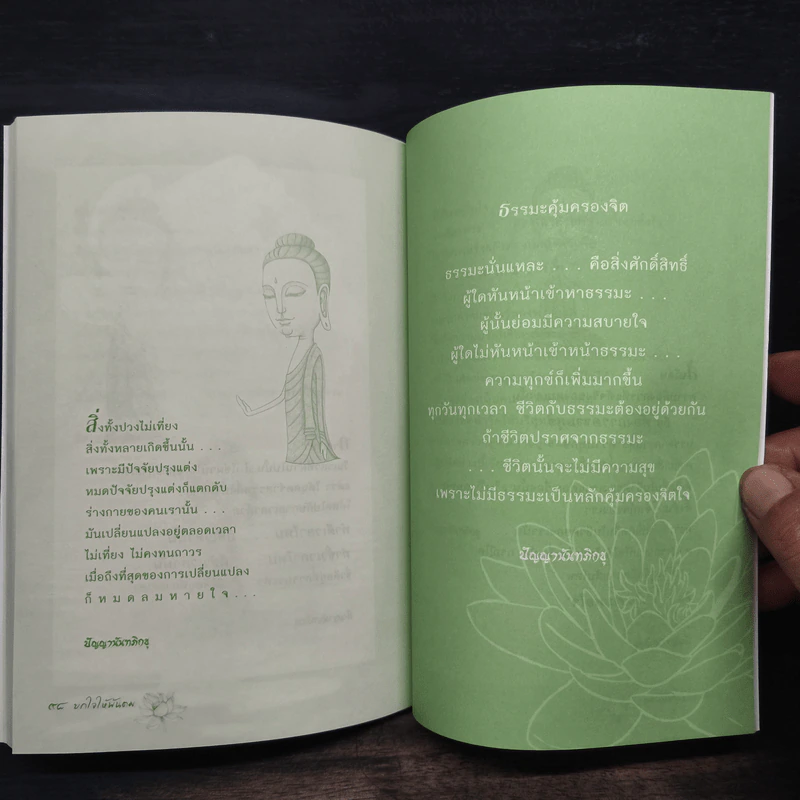 สิ่งทั้งปวงไม่เที่ยง
สิ่งทั้งหลายเกิดขึ้นนั้น . . .
เพราะมีปัจจัยปรุงแต่ง
หมดปัจจัยปรุงแต่งก็แตกดับ
ร่างกายของคนเรานั้น . . .
มันเปลี่ยนแปลงอยู่ตลอดเวลา
ไม่เที่ยง ไม่คงทนถาวร
เมื่อถึงที่สุดของการเปลี่ยนแปลง
ก็ ห ม ด ล ม ห า ย ใ จ . . .
ปัญญานันทภิกขุ
๙๘ ยกใจให้พ้นตม
ธรรมะคุ้มครองจิต
ธรรมะนั่นแหละ . . . คือสิ่งศักดิ์สิทธิ์
ผู้ใดหันหน้าเข้าหาธรรมะ . . .
ผู้นั้นย่อมมีความสบายใจ
ผู้ใดไม่หันหน้าเข้าหน้าธรรมะ . . .
ความทุกข์ก็เพิ่มมากขึ้น
ทุกวันทุกเวลา ชีวิตกับธรรมะต้องอยู่ด้วยกัน
ถ้าชีวิตปราศจากธรรมะ
. . . ชีวิตนั้นจะไม่มีความสุข
เพราะไม่มีธรรมะเป็นหลักคุ้มครองจิตใจ
ปัญญานันทภิกขุ